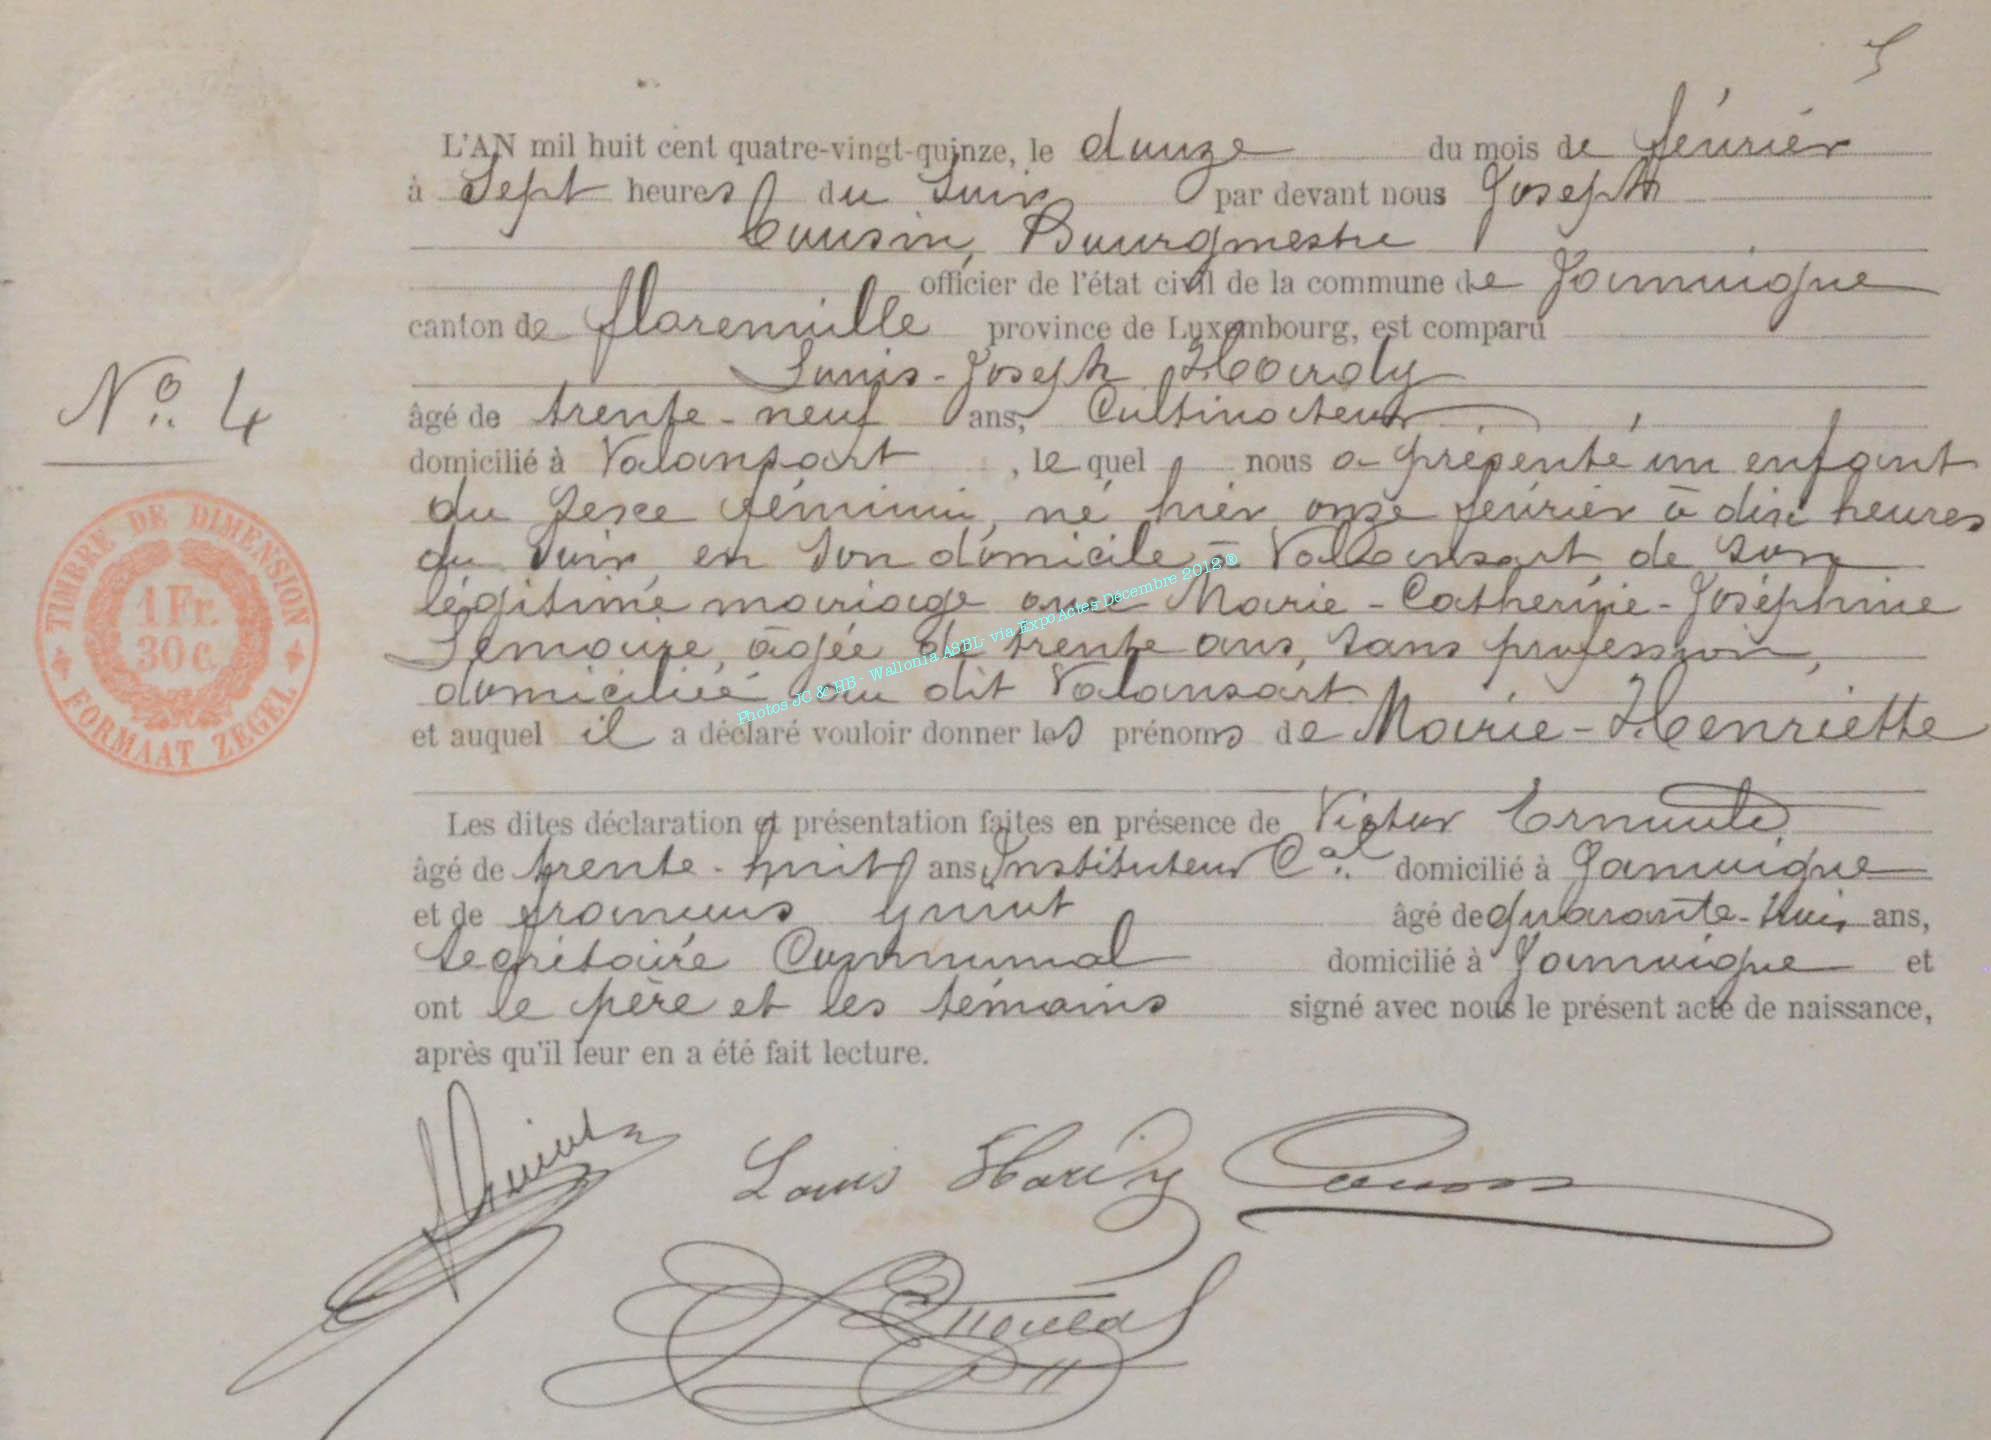 5
L'AN mil huit cent quatre-vingt-quinze, le douze du mois de février
à sept heures du soir par devant nous Joseph
Cousin, Bourgmestre
officier de l'état civil de la commune de Jamoigne
canton de florenville province de Luxembourg, est comparu
Louis-Joseph Hardy
âgé de trente-neuf ans, Cultivateur
domicilié à Valansart, le quel nous a présenté un enfant
du sexe féminin, né hier onze février à dix heures
du soir en son domicile à Valansart, de son
légitime mariage avec Marie-Catherine-Joséphine
Lemaire, âgée de trente ans, sans profession,
domiciliée au dit Valansart
et auquel il a déclaré vouloir donner les prénoms de Marie-Henriette
Les dites déclaration et présentation faites en présence de Victor
âgé de trente-huit ans Instituteur Cal. domicilié à Jamoigne
et de âgé de quarante-trois ans,
secrétaire Communal domicilié à Jamoigne et
ont le père et les témoins signé avec nous le présent acte de naissance,
après qu'il leur en a été fait lecture.
No. 4
TIMBRE DE DIMENSION
1 Fr.
30 c.
FORMAAT ZEGEL
Photos JC & HB - Wallonia ASBL via ExpoActes Décembre 2012 ®
Louis Hardy Cousin